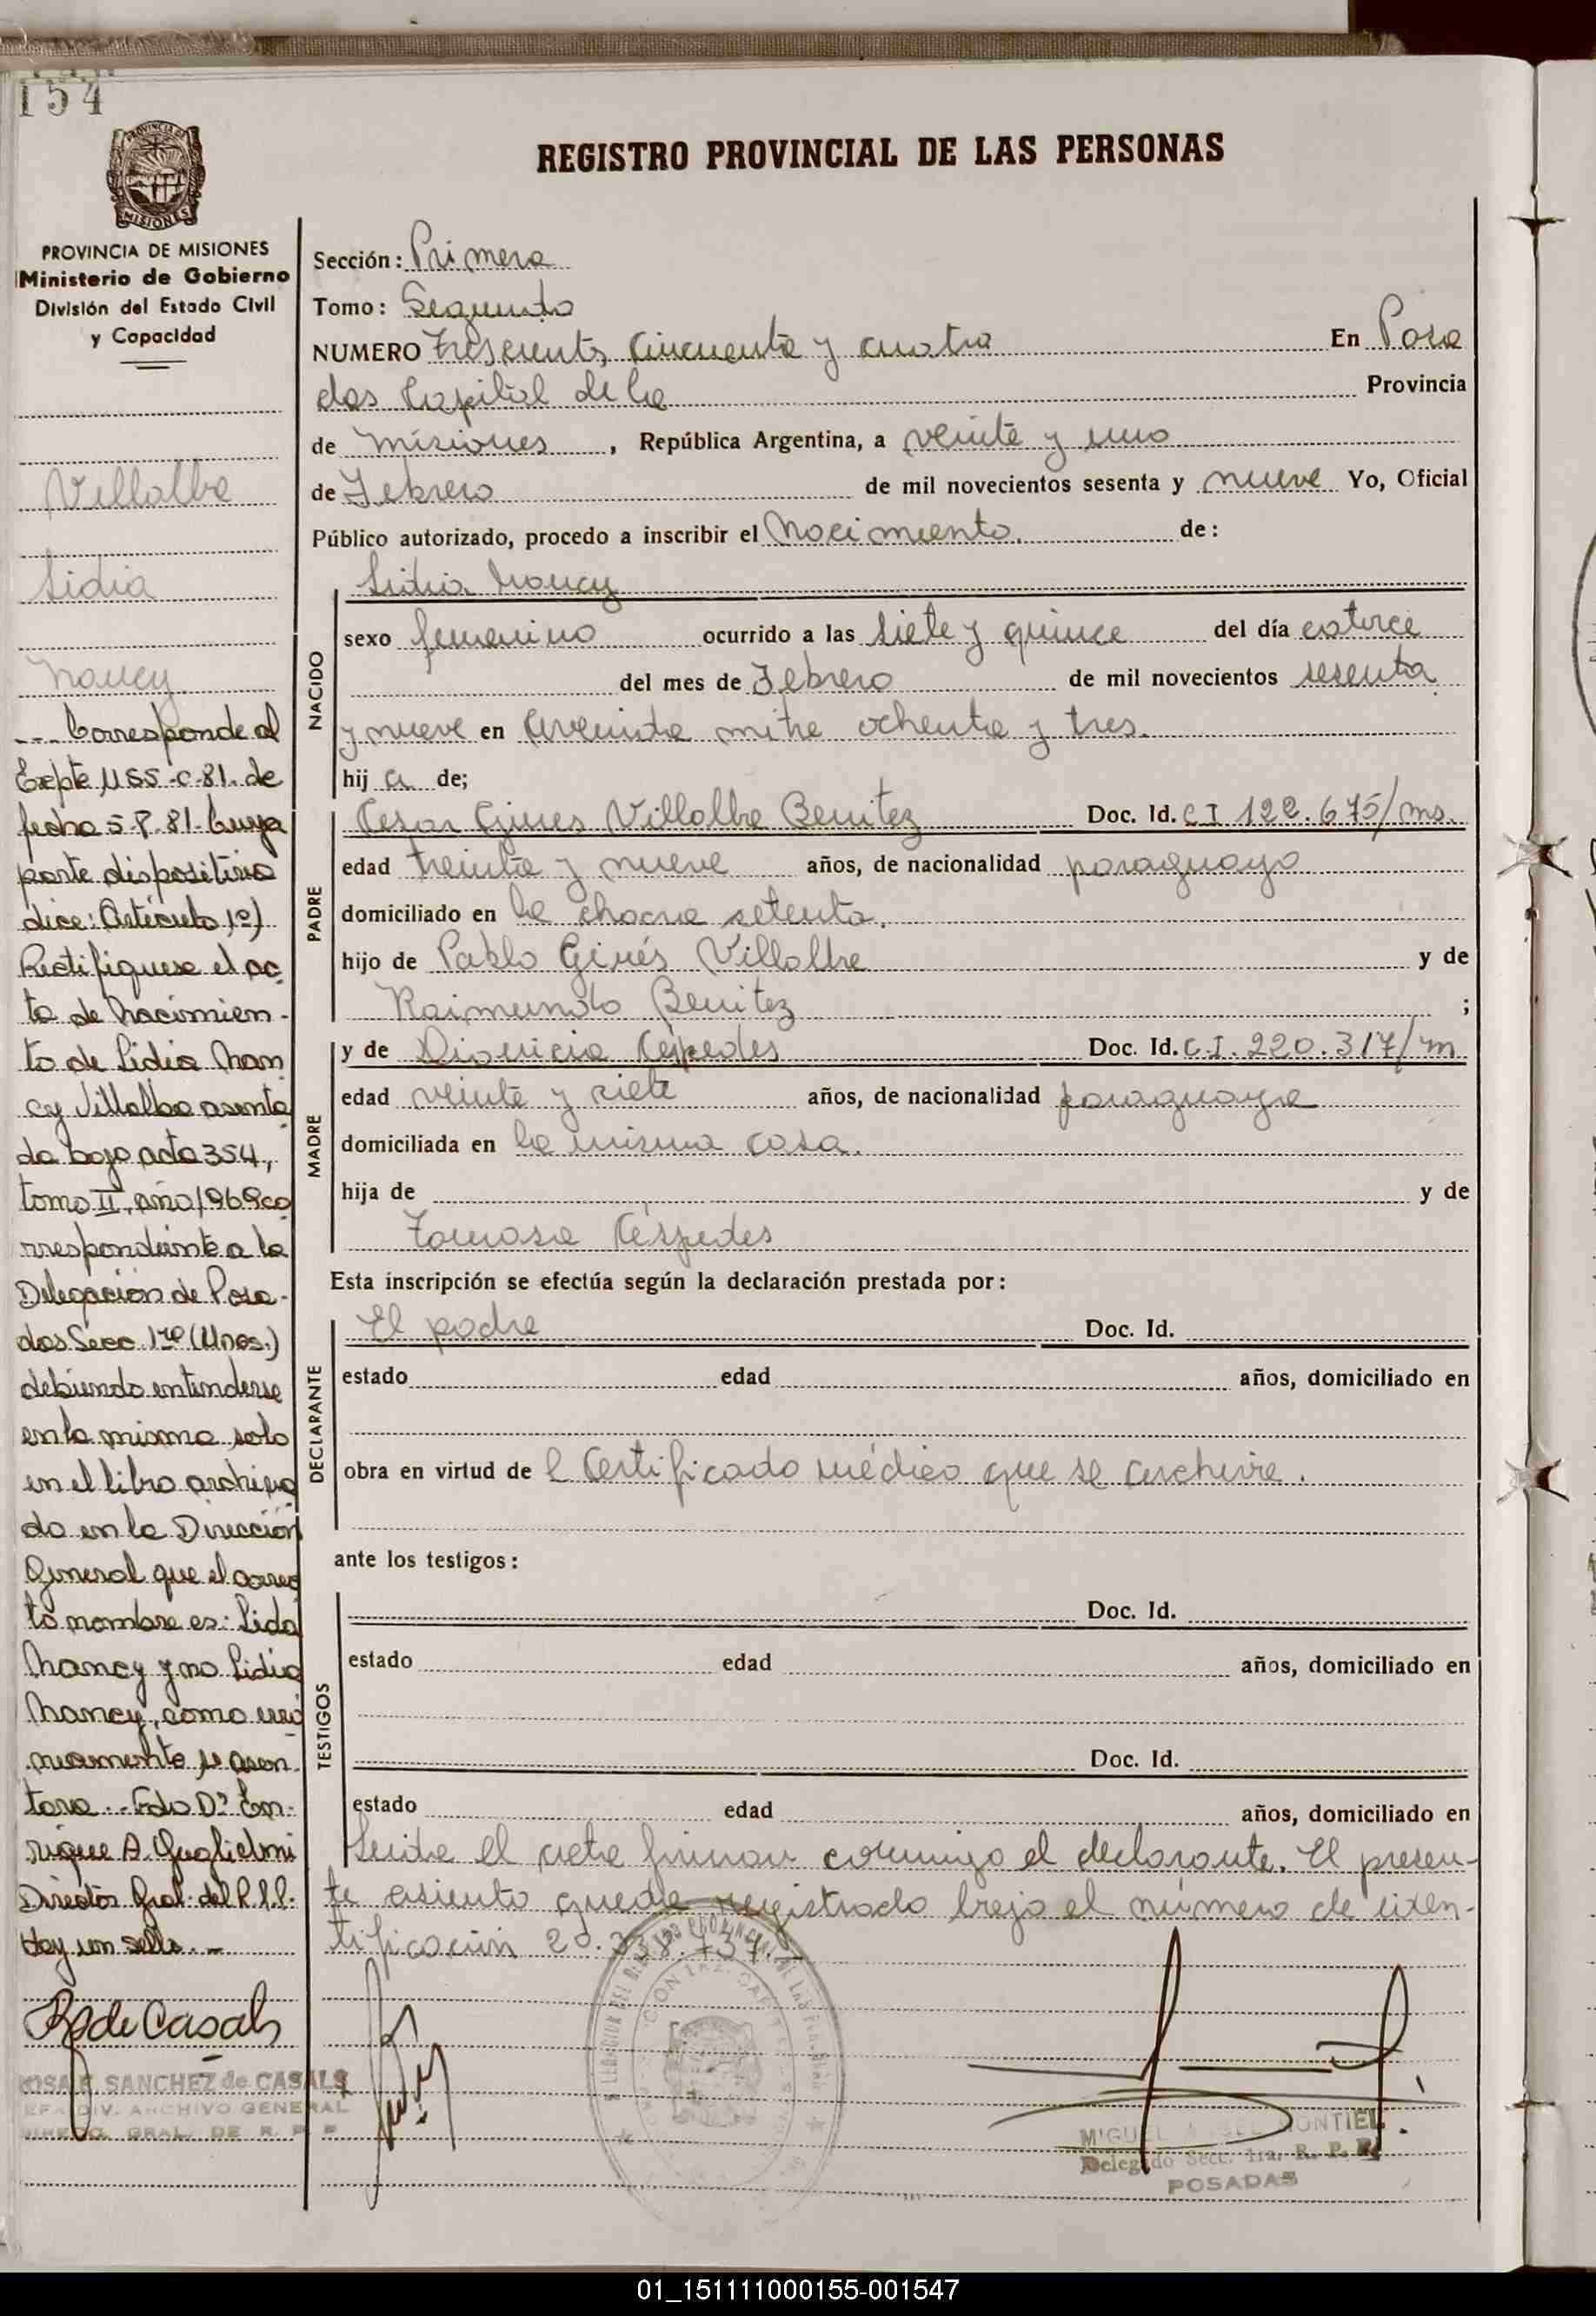 154
PROVINCIA DE
MISIONES
REGISTRO PROVINCIAL DE LAS PERSONAS
PROVINCIA DE MISIONES
Ministerio de Gobierno
División del Estado Civil
y Capacidad
Villalba
Lidia
Nancy
--- Corresponde al
Expte 1155-C-81. de
fecha 5-8-81. Cuya
parte dispositiva
dice: Artículo 1º)
Rectifiquese el ac
ta de Nacimien-
to de Lidia Nan
cy Villalba asenta
da bajo acta 354,
tomo II, año 1969 co
rrespondiente a la
Delegación de Posa-
das Secc. 1ra (Mnes.)
debiendo entenderse
en la misma solo
en el libro archiva
do en la Dirección
General que el correc
to nombre es: Lida
Nancy y no Lidia
Nancy, como erró
neamente se asen
tara.- Fdo Dº En-
rique A. Guglielmi
Director Gral. del R.P.P.
Hay un sello.-
R de Casals
ROSA E. SANCHEZ de CASALS
JEFA DIV. ARCHIVO GENERAL
DIREC. GRAL. DE R. P. P.
Sección: Primera
Tomo: Segundo
NUMERO Trescientos cincuenta y cuatro En Posa
das Capital de la Provincia
de Misiones, República Argentina, a veinte y uno
de Febrero de mil novecientos sesenta y nueve Yo, Oficial
Público autorizado, procedo a inscribir el Nacimiento. de:
Lidia Nancy
NACIDO
sexo femenino ocurrido a las siete y quince del día catorce
del mes de Febrero de mil novecientos sesenta
y nueve en Avenida mitre ochenta y tres.
hij a de;
PADRE
Cesar Gines Villalba Benitez Doc. Id. C I 122.675/ms.
edad treinta y nueve años, de nacionalidad paraguayo
domiciliado en la chacra setenta.
hijo de Pablo Ginés Villalba y de
Raimunda Benitez ;
MADRE
y de Dionicia Céspedes Doc. Id. C.I. 220.317/m
edad veinte y siete años, de nacionalidad paraguaya
domiciliada en la misma casa.
hija de y de
Tomasa Céspedes
Esta inscripción se efectúa según la declaración prestada por:
DECLARANTE
El padre Doc. Id.
estado edad años, domiciliado en
obra en virtud de l Certificado médico que se archiva.
ante los testigos:
TESTIGOS
Doc. Id.
estado edad años, domiciliado en
Doc. Id.
estado edad años, domiciliado en
Leida el acta firman conmigo el declarante. El presen-
te asiento queda registrado bajo el número de iden-
tificación 20.338.737.
MIGUEL ANGEL MONTIEL
Delegado Secc. 1ra. R. P. P.
POSADAS
01_151111000155-001547